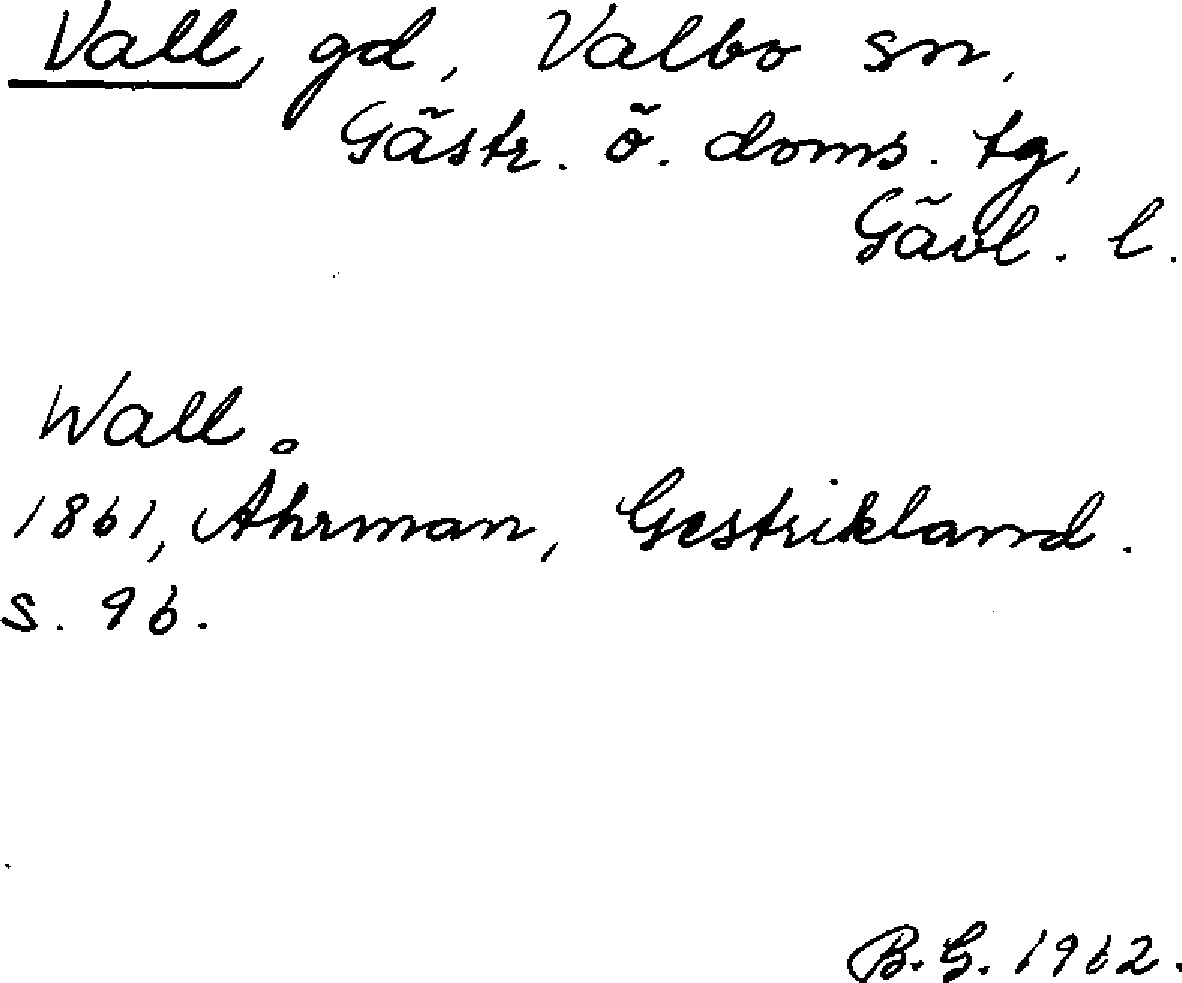 Vall, gd, Valbo sn,
Gästr. ö. doms. tg,
Gävl. l.
Wall.
1861, Åhrman, Gestrikland.
s. 96.
B.G. 1962.